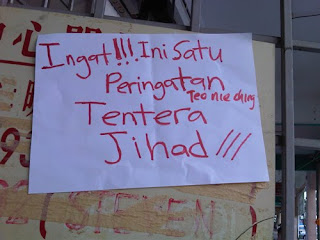 Ingat!!! Ini Satu
Peringatan
Teo nie ching
Tentera
Jihad !!!